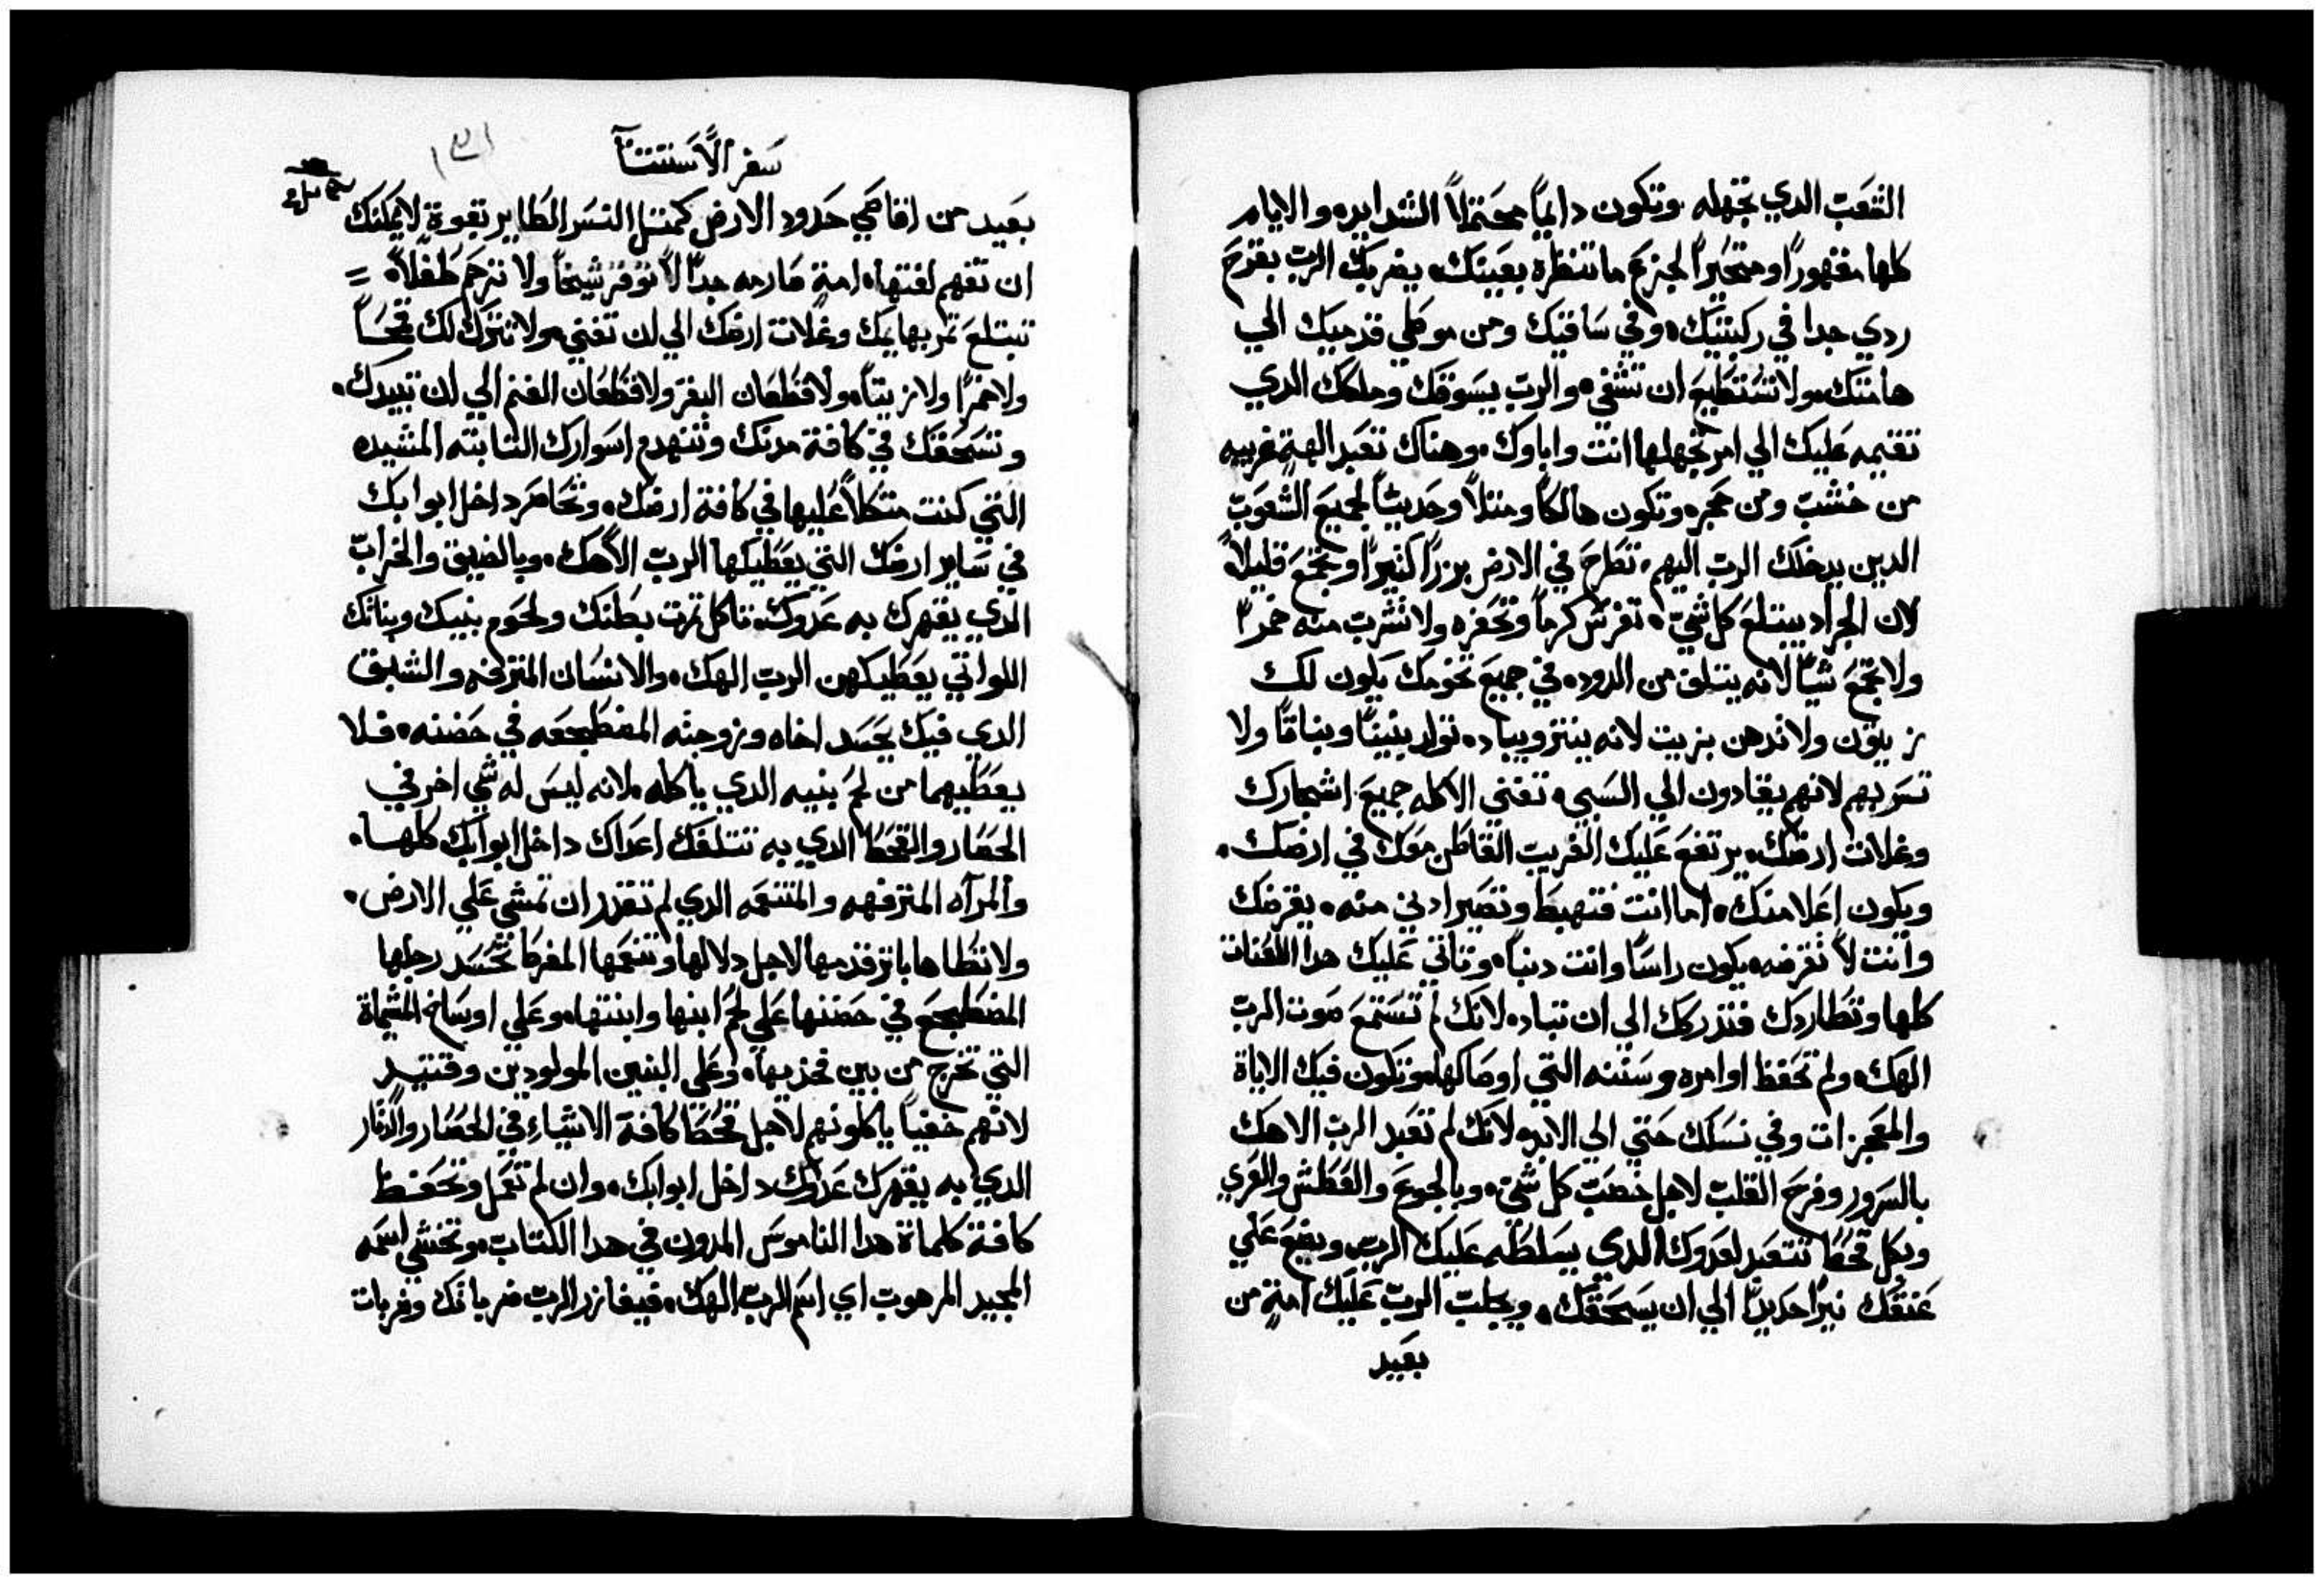 الشعب الدي تجهله وتكون دايماً محتملاً الشدايد، والايام
كلها مقهوراً ومتحيراً لجزع ما تنظره بعينك، يضربك الرب بقرح
ردي جدا في ركبتيك، وفي ساقيك ومن موطي قدميك الي
هامتك، ولا تستطيع ان تشفي، والرب يسوقك وملكك الدي
تقيمه عليك الي امم تجهلها انت واباوك، وهناك تعبد الهةٍ غريبه
من خشب ومن حجر، وتكون هالكاً ومثلاً وحديثاً لجميع الشعوب
الدين يدخلك الرب اليهم، تطرح في الارض بزراً كثيراً وتجمع قليلاً
لان الجراد يبتلع كل شي، تغرس كرماً وتحفره ولا تشرب منه خمراً
ولا تجمع شياً لانه يتلف من الدود، في جميع تخومك يكون لك
زيتون ولا تدهن بزيت لانه ينتر ويباد، تولد بنيناً وبناتاً ولا
تسر بهم لانهم يقادون الي السبي، تفني الاكله جميع اشجارك
وغلات ارضك، يرتفع عليك الغريب القاطن معك في ارضك،
ويكون اعلا منك، اما انت فتهبط وتصير ادني منه، يقرضك
وانت لا تقرضه، يكون راساً وانت دنباً، وتاتي عليك هدا اللعنات
كلها وتطاردك فتدركك الي ان تباد، لانك لم تستمع صوت الرب
الهك، ولم تحفظ اوامره وسننه التي اوصاكها، وتكون فيك الاياة
والمعجزات وفي نسلك حتي الي الابد، لانك لم تعبد الرب الاهك
بالسرور وفرح القلب لاجل خصب كل شي، وبالجوع والعطش والعري
وبكل قحط تتعبد لعدوك الدي يسلطه عليك الرب، ويضع علي
عنقك نيراً حديداً الي ان يسحقك، ويجلب الرب عليك امةٍ من
بعيد
سفر الاستثنا
بعيد من اقاصي حدود الارض كمثل النسر الطاير بقوةٍ لا يمكنك
ان تفهم لغتها، امةٍ صارمه جداً لا توقر شيخاً ولا تترحم طفلاً،
تبتلع ثمر بهايمك وغلات ارضك الي ان تفني، ولا تترك لك قمحاً
ولا خمراً ولا زيتاً، ولا قطعان البقر ولا قطعان الغنم الي ان تبيدك،
وتسحقك في كافة مدنك وتنهدم اسوارك الثابته المشيده
التي كنت متكلاً عليها في كافة ارضك، وتحاصر داخل ابوابك
في ساير ارضك التي يعطيكها الرب الاهك، وبالضيق والخراب
الدي يقهرك به عدوك، تاكل ثمرت بطنك ولحوم بنيك وبناتك
اللواتي يعطيكهن الرب الهك، والانسان المترفه والشبق
الدي فيك يحسد اخاه وزوجته المضطجعه في حضنه، فلا
يعطيهما من لحم بنيه الدي ياكله، لانه ليس له شي اخر في
الحصار والقحط الدي به تتلفك اعداك داخل ابوابك كلها،
والمرآه المترفهه والمتنعمه الدي لم تقدر ان تمشي علي الارض،
ولا تطاها باثر قدمها لاجل دلالها وتنعمها المفرط تحسد رجلها
المضطجع في حضنها علي لحم ابنها وابنتها، وعلي اوساخ المشماة
التي تخرج من بين فخديها، وعلي البنين المولودين وقتيد
لانهم خفياً ياكلونهم لاجل قحط كافة الاشياء في الحصار والدمار
الدي به يقهرك عدوك داخل ابوابك، وان لم تعمل وتحفظ
كافة كلماة هدا الناموس المدون في هدا الكتاب، وتخشي اسمه
المجيد المرهوب اي اسم الرب الهك، فيغازر الرب ضرباتك وضربات